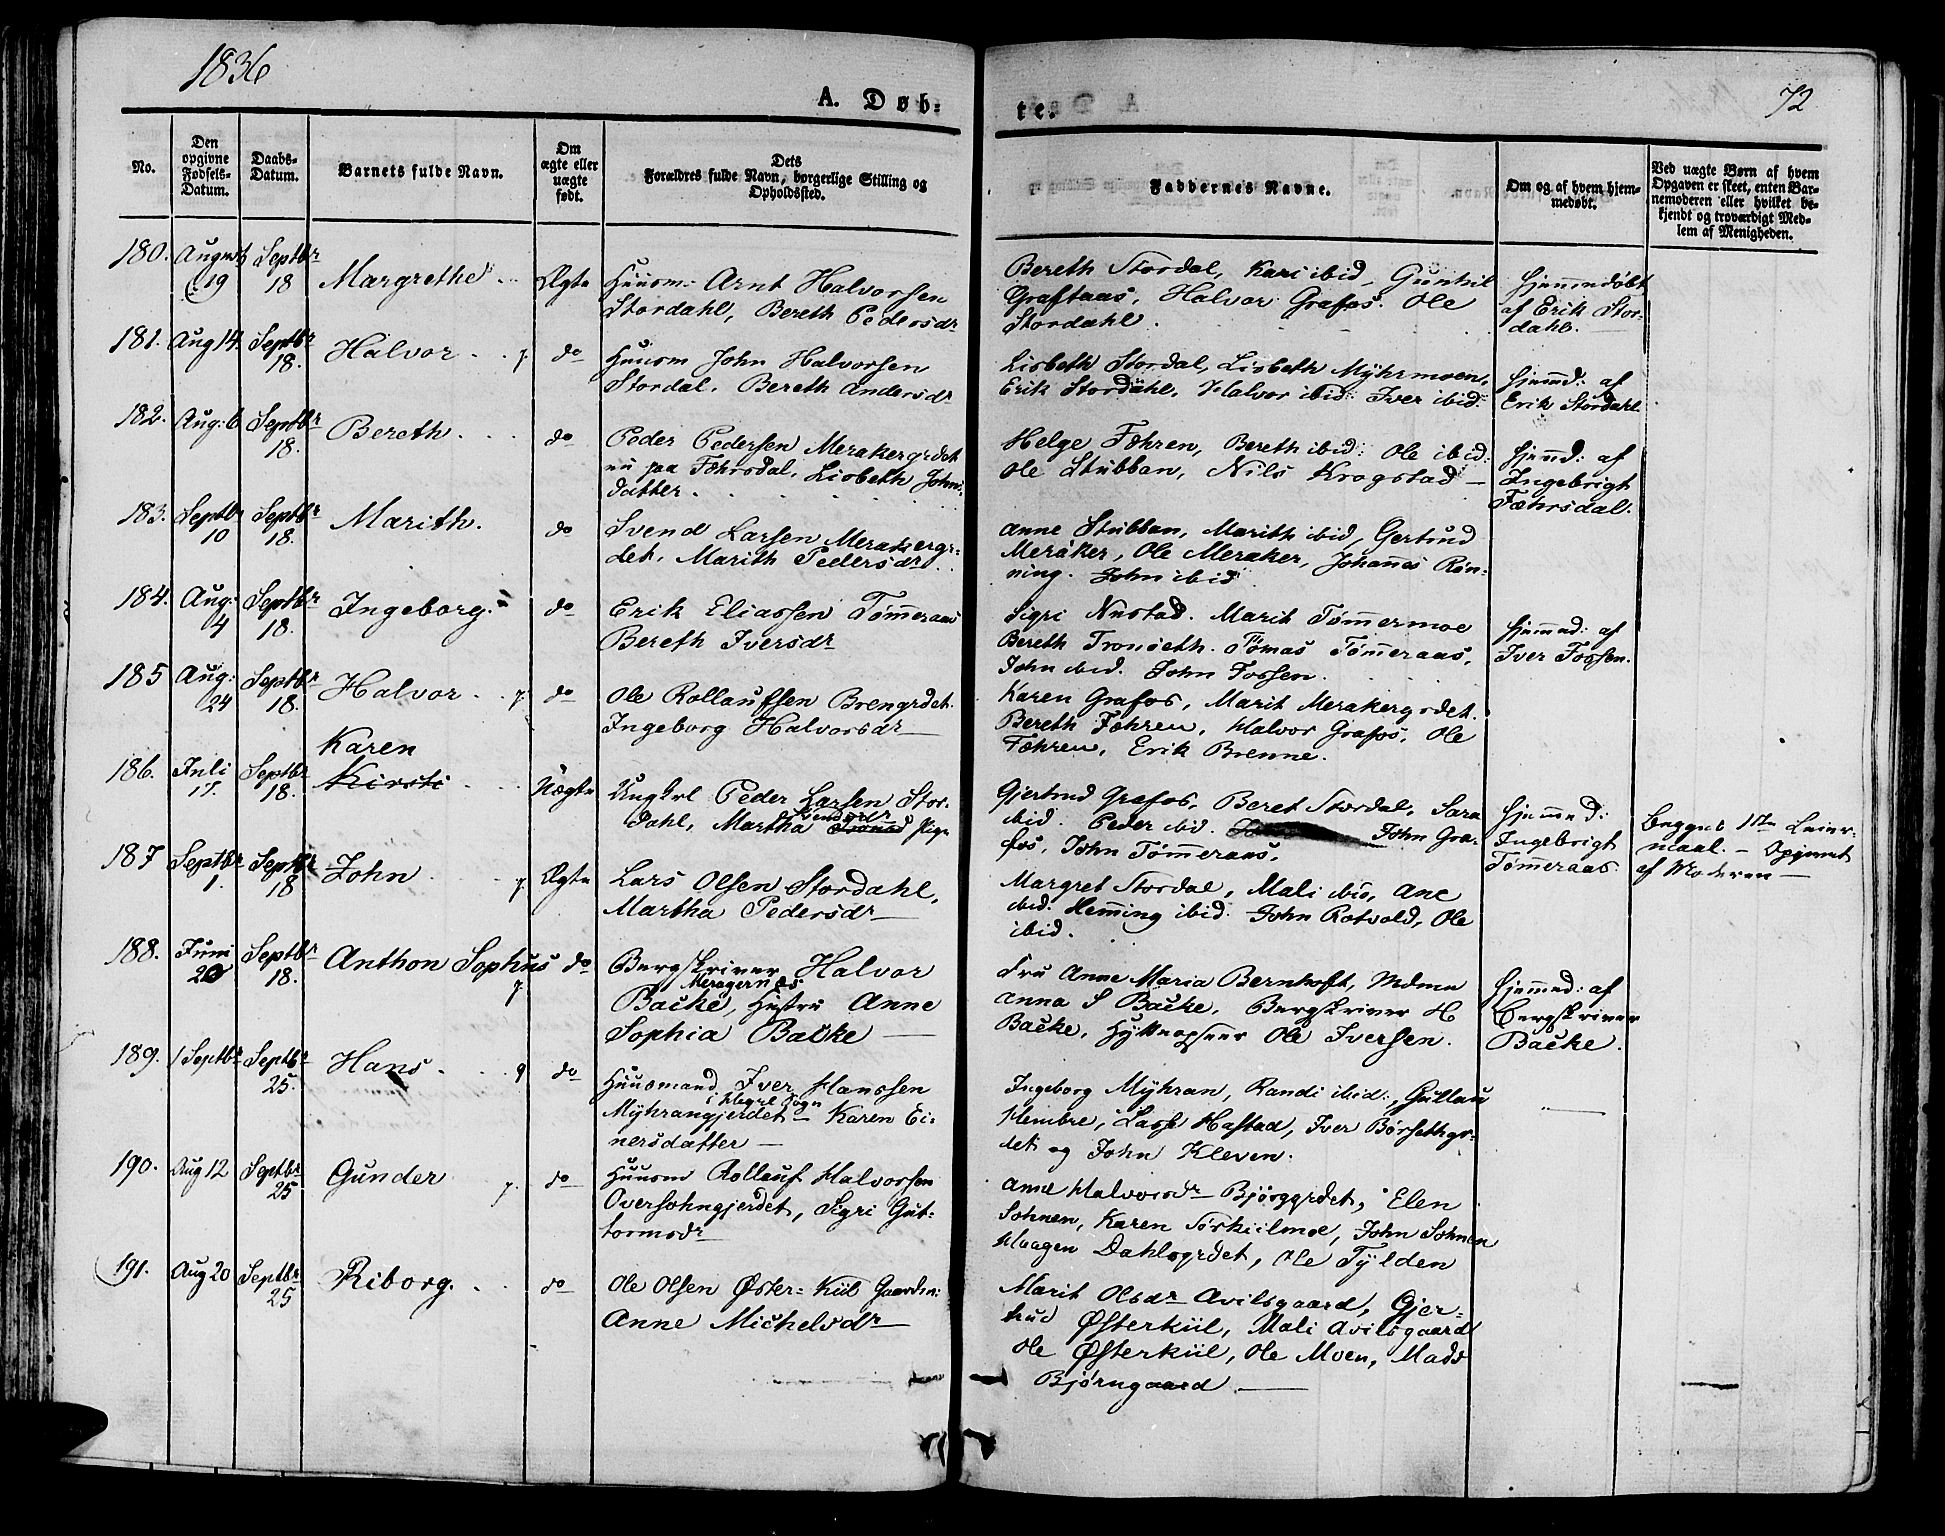 1836
A. Døb-
te.
72
No.
Den opgivne Fødsels-Datum.
Daabs-Datum.
Barnets fulde Navn.
Om ægte eller uægte født.
Dets Forældres fulde Navn, borgerlige Stilling og Opholdssted.
Faddernes Navne.
Om og af hvem hjem-medøbt.
Ved uægte Børn af hvem Opgaven er skeet, enten Bar-nemoderen eller hvilket be-kjendt og troværdigt Med-lem af Menigheden.
180. August 19 Septbr 18 Margrethe Ægte
Huusm: Arnt Halvorsen
Stordahl, Bereth Pedersdr
Bereth Stordal, Kari ibid, Gunhil
Graftaas, Halvor Grafos. Ole
Stordahl.
Hjemmedøbt
af Erik Stor-
dahl.
181. Aug 14. Septbr 18. Halvor do
Huusm John Halvorsen
Stordal. Bereth Andersdr
Lisbeth Stordal, Lisbeth Myhrmoen,
Erik Stordahl, Halvor ibid: Iver ibid:
Hjemmd: af
Erik Stordahl
182. Aug: 6 Septbr 18. Bereth do
Peder Pedersen Merakergrdet
nu paa Fæhrsdal, Lisbeth Johns-
datter.
Helge Fæhren, Bereth ibid: Ole ibid:
Ole Stubban, Nils Krogstad
Hjemd: af
Ingebrigt
Fæhrsdal.
183. Septbr 10 Septbr 18. Marith. do
Svend Larsen Merakergr-
det. Marith Pedersdr
Anne Stubban, Marith ibid, Gertrud
Meraker, Ole Meraker, Johannes Røn-
ning. John ibid
184. Aug: 4 Septbr 18. Ingeborg. do
Erik Eliassen Tømmeraas
Bereth Iversdr
Sigri Nustad. Marit Tømmermoe
Bereth Tronseth. Tomas Tømmeraas,
John ibid. John Fossen.
Hjemmed: af
Iver Fossen.
185 Aug: 24 Septbr 18. Halvor do
Ole Rollaufsen Brengrdet.
Ingeborg Halvorsdr
Karen Grafos, Marit Merakergrdet.
Bereth Fæhren, Halvor Grafos, Ole
Fæhren, Erik Brenne.
Karen
186. Juli 17. Septbr 18. Kirsti Uægte
Ungkrl Peder Larsen Stor-
dahl, Martha Svendsdr Pige
Gjertrud Grafos, Beret Stordal, Sara
ibid. Peder ibid. John Gra-
fos, John Tømmeraas.
Hjemmed:
Ingebrigt
Tømmeraas.
Begges 1te Leier-
maal. - Opgivet
af Moderen
187 Septbr 1. Septbr 18 John Ægte
Lars Olsen Stordahl,
Martha Pedersdr
Margret Stordal, Mali ibid, Ane
ibid. Hemming ibid. John Rotvold, Ole
ibid.
188. Juni 20 Septbr 18. Anthon Sophus do
Bergskriver Halvor
Meragernæs
Backe, Hustru Anne
Sophia Backe
Fru Anne Maria Bernhoft, Mdme
Anna S Backe, Bergskriver H
Backe, Hytteopseer Ole Iversen.
Hjemmed: af
Bergskriver
Backe.
189. 1 Septbr Septbr 25. Hans do
Huusmand Iver Hanssen
i Hegre Sogn
Myhrangjerdet Karen Ei-
nersdatter
Ingeborg Myhran, Randi ibid:, Gullau
Hembre, Lasse Hastad, Iver Børsethgr-
det og John Kleven.
190. Aug 12 Septbr 25 Gunder do
Huusm Rollauf Halvorsen
Oversohngjerdet, Sigri Gut-
tormsdr
Anne Halvorsdr Bjørggrdet, Elen
Sohnen, Karen Torkiilmoe, John Sohnen
Haagen Dahlsgrdet, Ole Tylden
191. Aug 20 Septbr 25 Riborg. do
Ole Olsen Øster-Kiil Gaardm:
Anne Michelsdr
Marit Olsdr Avilsgaard, Gjer-
trud Østerkiil, Mali Avilsgaard
Ole Østerkiil, Ole Moen, Mads
Bjørngaard